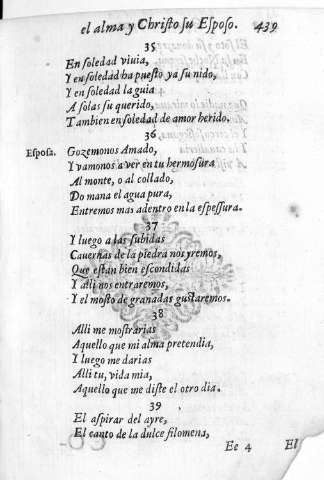 el alma y Christo su Esposo. 439
35
En soledad viuia,
Y en soledad ha puesto ya su nido,
Y en soledad la guia
A solas su querido,
Tambien en soledad de amor herido.
36
Esposa. Gozemonos Amado,
Y vamonos a ver en tu hermosura
Al monte, o al collado,
Do mana el agua pura,
Entremos mas adentro en la espessura.
37
Y luego a las subidas
Cauernas de la piedra nos yremos,
Que estan bien escondidas
Y alli nos entraremos,
Y el mosto de granadas gustaremos.
38
Alli me mostrarias
Aquello que mi alma pretendia,
Y luego me darias
Alli tu, vida mia,
Aquello que me diste el otro dia.
39
El aspirar del ayre,
El canto de la dulce filomena,
Ee 4 El